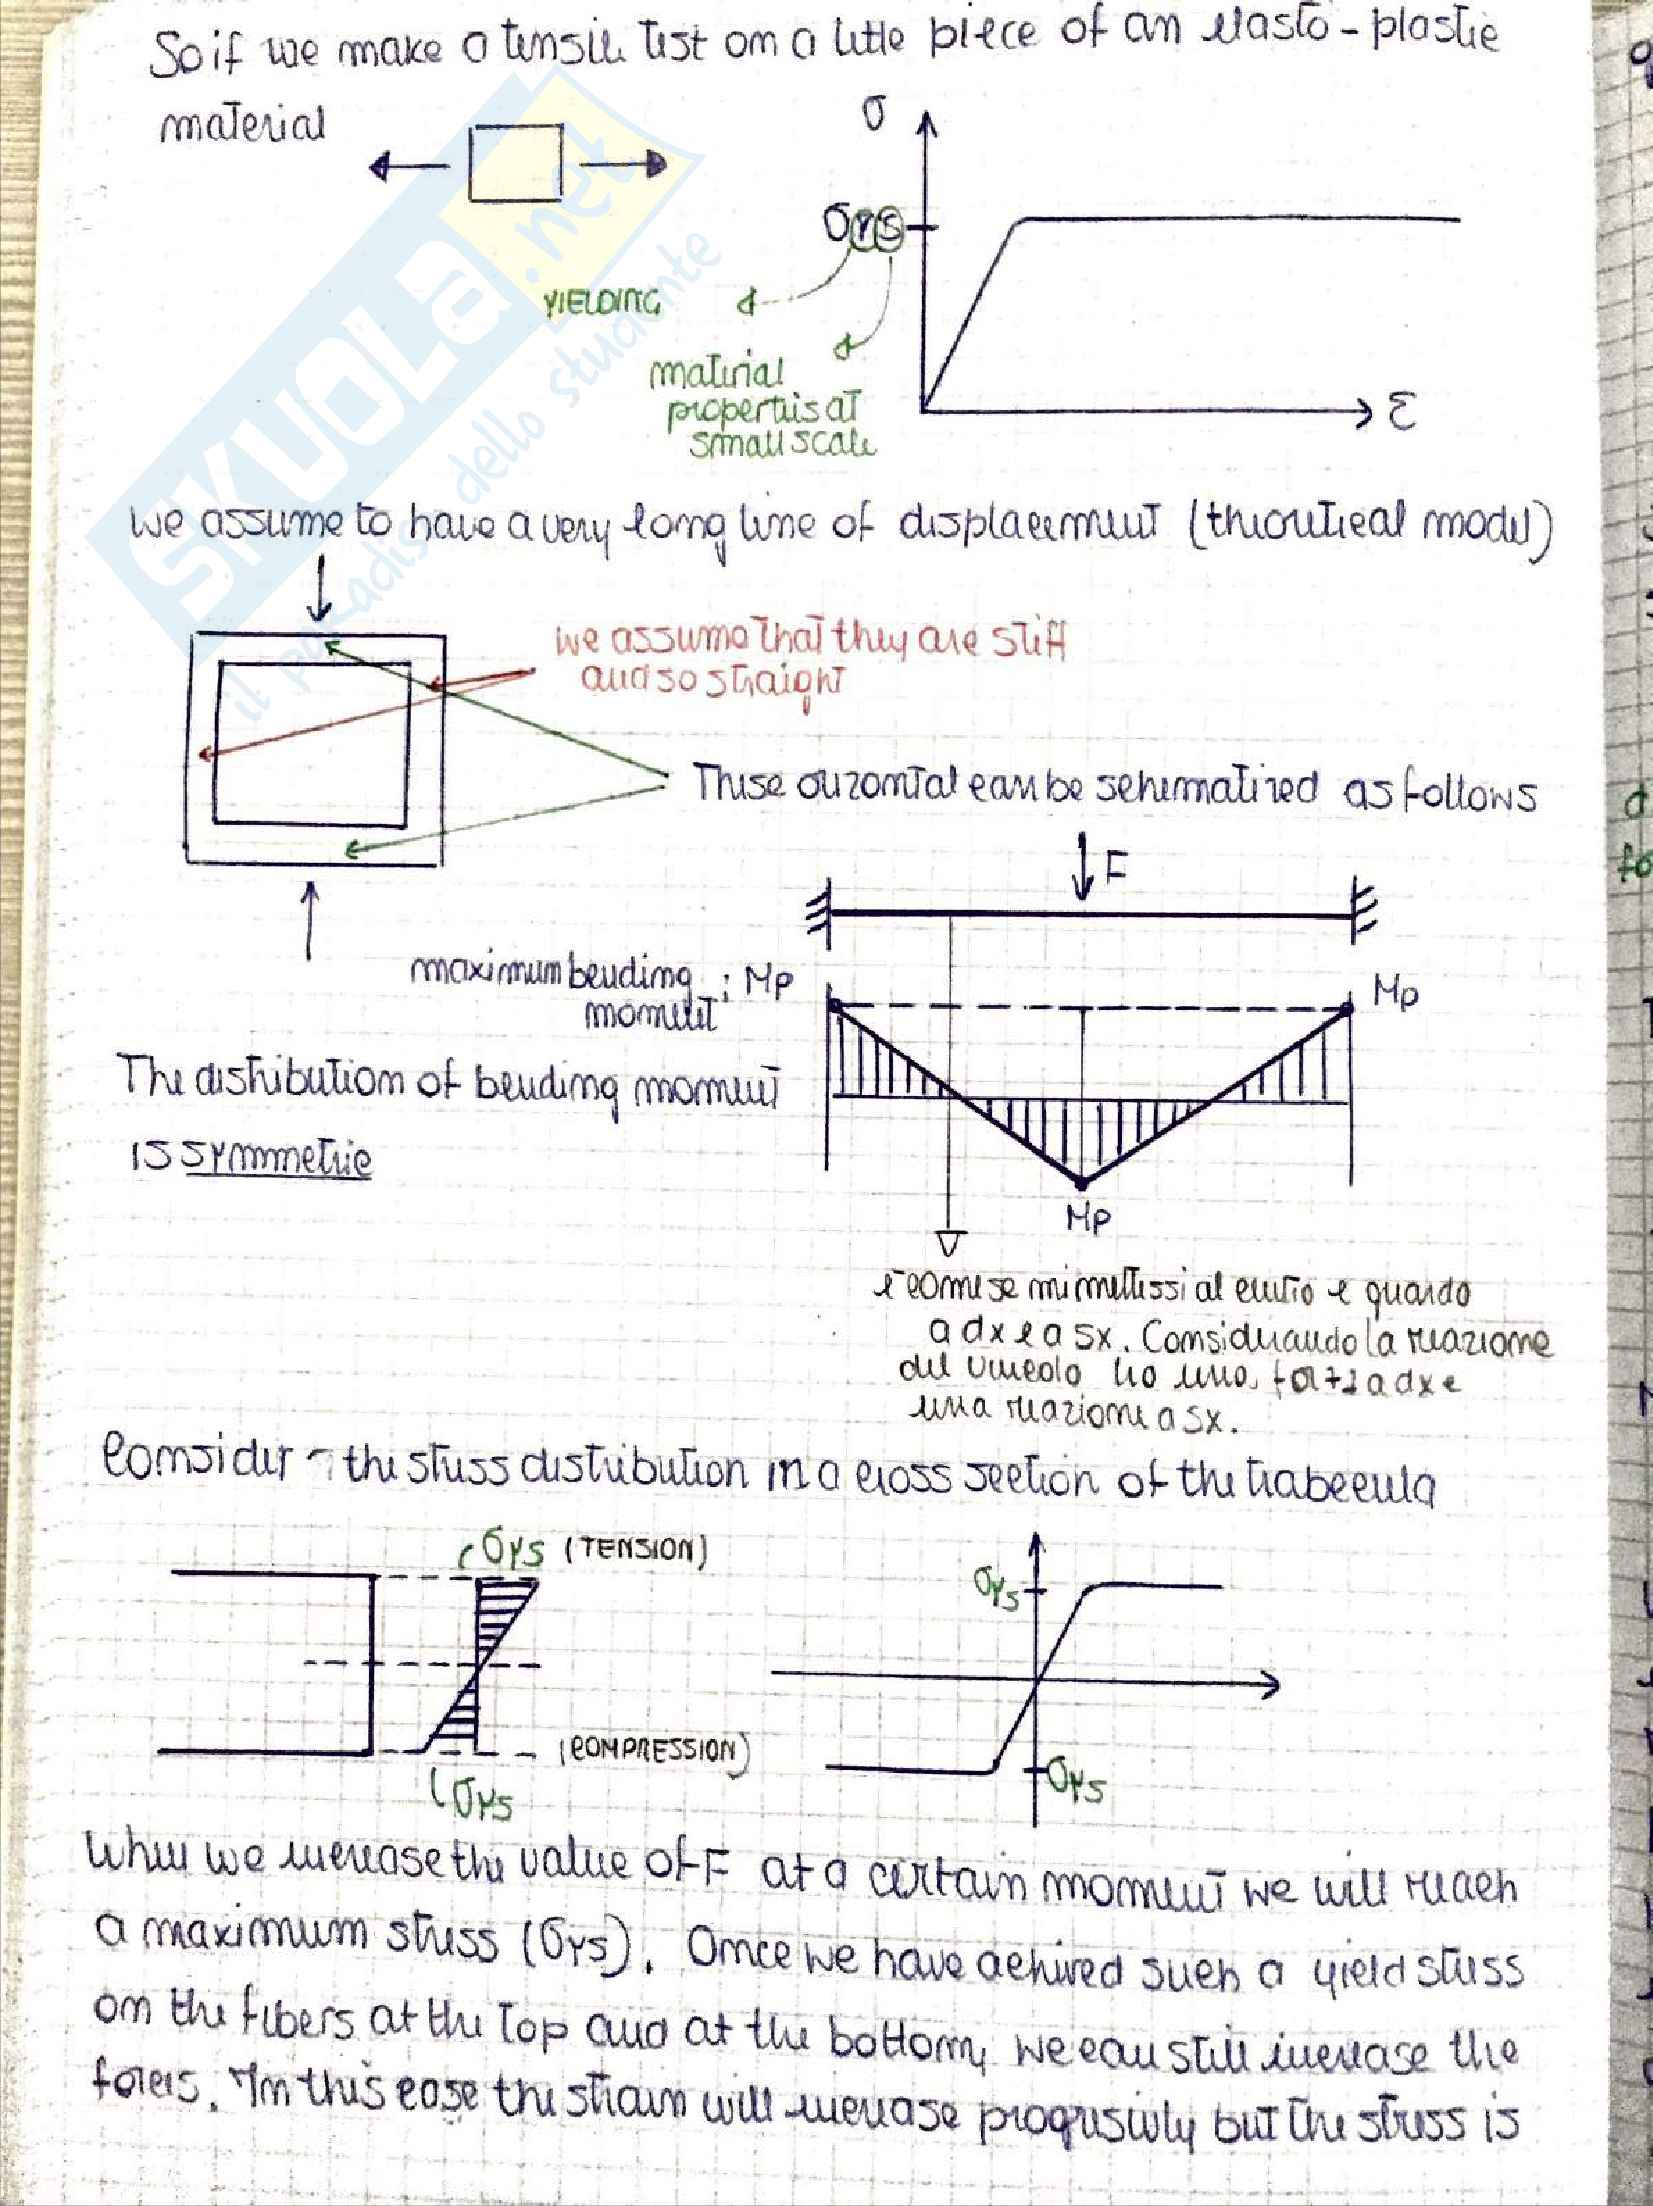 So if we make a tensile test on a little piece of an elasto-plastic
material
σ
σys
YIELDING
material
properties at
small scale
ε
we assume to have a very long line of displacement (theoretical model)
we assume that they are stiff
and so straight
These orizontal can be schematized as follows
F
maximum bending : Mp
moment
Mp
The distribution of bending moment
is symmetric
Mp
è come se mi mettessi al centro e guardo
a dx e a sx. Considerando la reazione
del vincolo ho una forza a dx e
una reazione a sx.
Consider the stress distribution in a cross section of the trabecula
σys (TENSION)
σys
(COMPRESSION)
σys
σys
When we increase the value of F at a certain moment we will reach
a maximum stress (σys). Once we have achived such a yield stress
on the fibers at the top and at the bottom, we can still increase the
forces. In this case the strain will increase progressivly but the stress is
SKUOLA.net
il paradiso dello studente